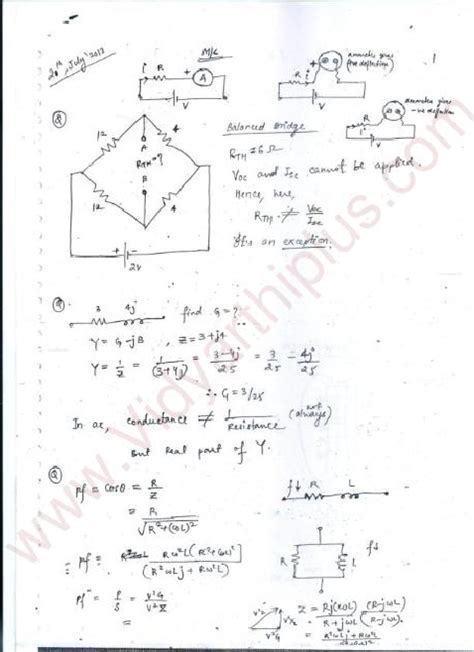 20th July 2013
M/C
R
A
V
ammeter gives
+ve deflection
R
V
ammeter gives
-ve deflection
R
V
1
Q
12
4
A
RTH=?
B
12
4
2V
Balanced Bridge
RTH = 6Ω
Voc and Isc cannot be applied.
Hence, here,
RTH ≠ Voc/Isc
It is an exception.
Q
3 4j find G = ?
Y = G-jB , Z = 3+j4
Y = 1/Z = 1/(3+4j) = 3-4j/25 = 3/25 - 4j/25
∴ G = 3/25
In ac, conductance ≠ 1/Resistance (not always)
But Real part of Y.
Q
pf = cosθ = R/Z
= R/√R²+(ωL)²
f↓ R L
R L f↓
pf =
(R²ωLj + Rω²L²)
pf = P/S = V²G/V²Y
V²G
Z = Rj(ωL)/R+jωL (R-jωL)/(R-jωL)
= R²ωLj + Rω²L²
www.Vidyarthiplus.com